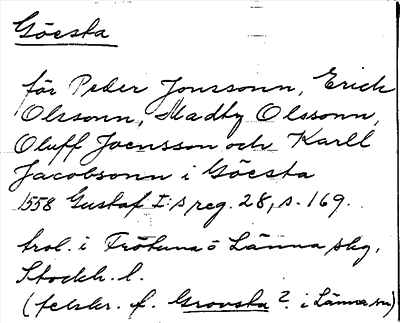 Göesta
för Peder Jonssonn, Erick
Olssonn, Madtz Olssonn,
Oluff Joensson och Karll
Jacobsonn i Göesta
1558 Gustaf I:s reg. 28, s. 169.
trol. i Frötuna o Länna skg,
Stockh. l.
(felskr. f. Grovsta? i Länna sn)